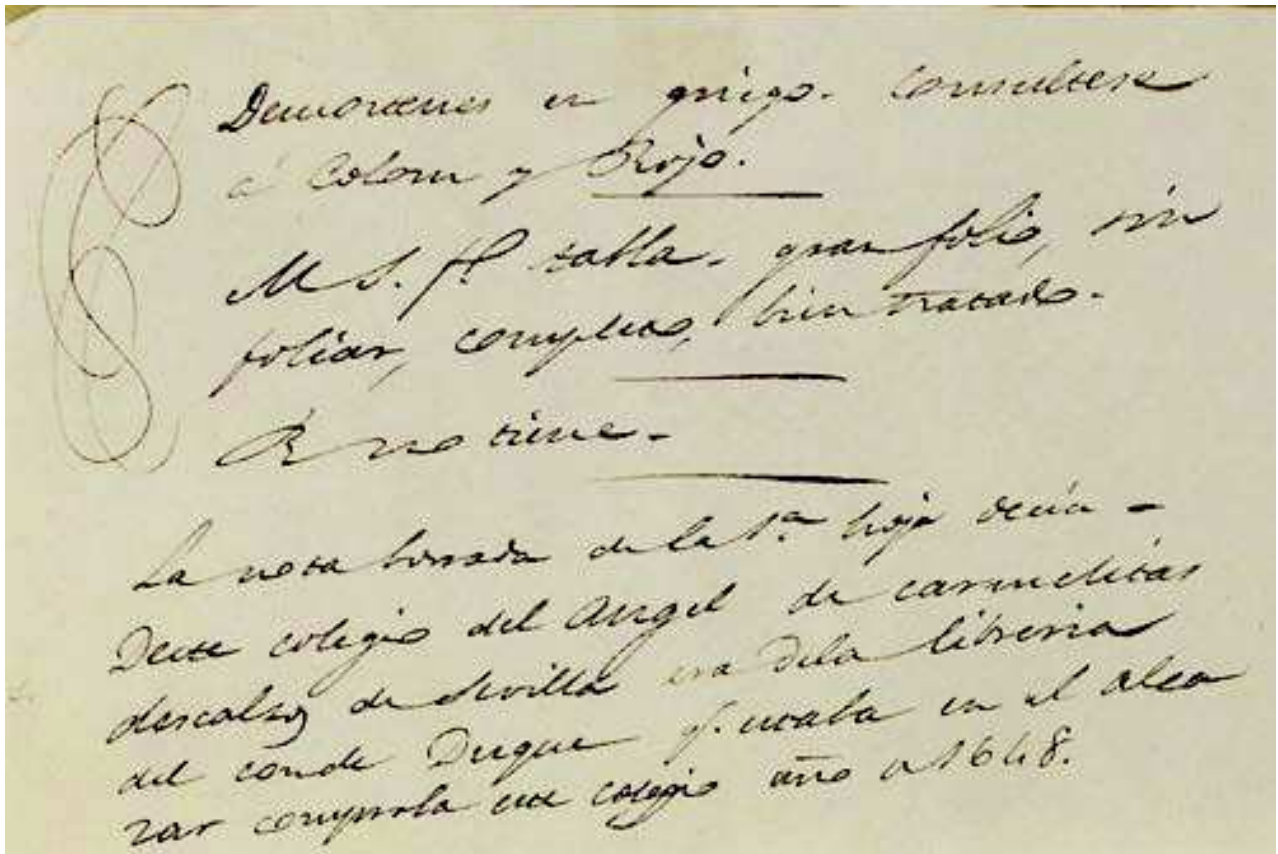 Demostenes en griego. Consultese
á Colom y Rojo.
M S. fl tabla. gran folio, sin
foliar, completo, bien tratado.
R no tiene.
La nota borrada de la 1.ª hoja decia -
Deste colegio del Angel de carmelitas
descalzos de Sevilla era dela libreria
del conde Duque q. estaba en el alca
zar comprola este colegio año 1648.